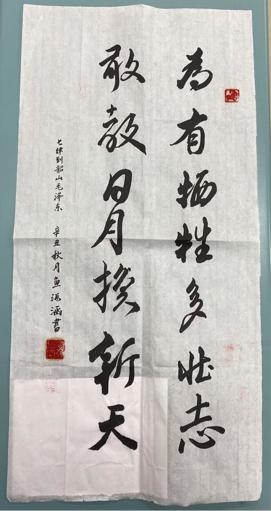 為有牺牲多壮志
敢教日月換新天
七律到韶山毛泽东 辛丑秋月鱼海涵書